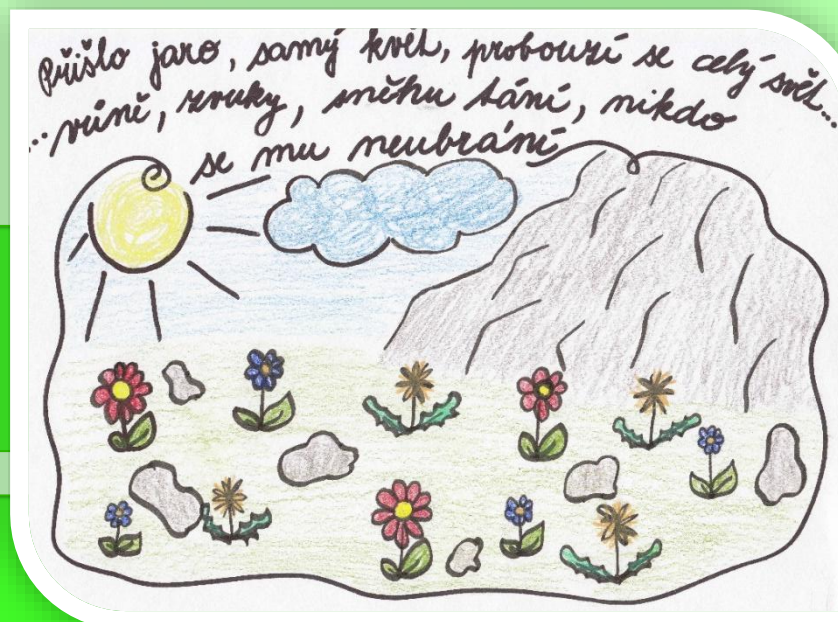 Přišlo jaro, samý květ, probouzí se celý svět...
...vůně, zvuky, sněhu tání, nikdo
se mu neubrání